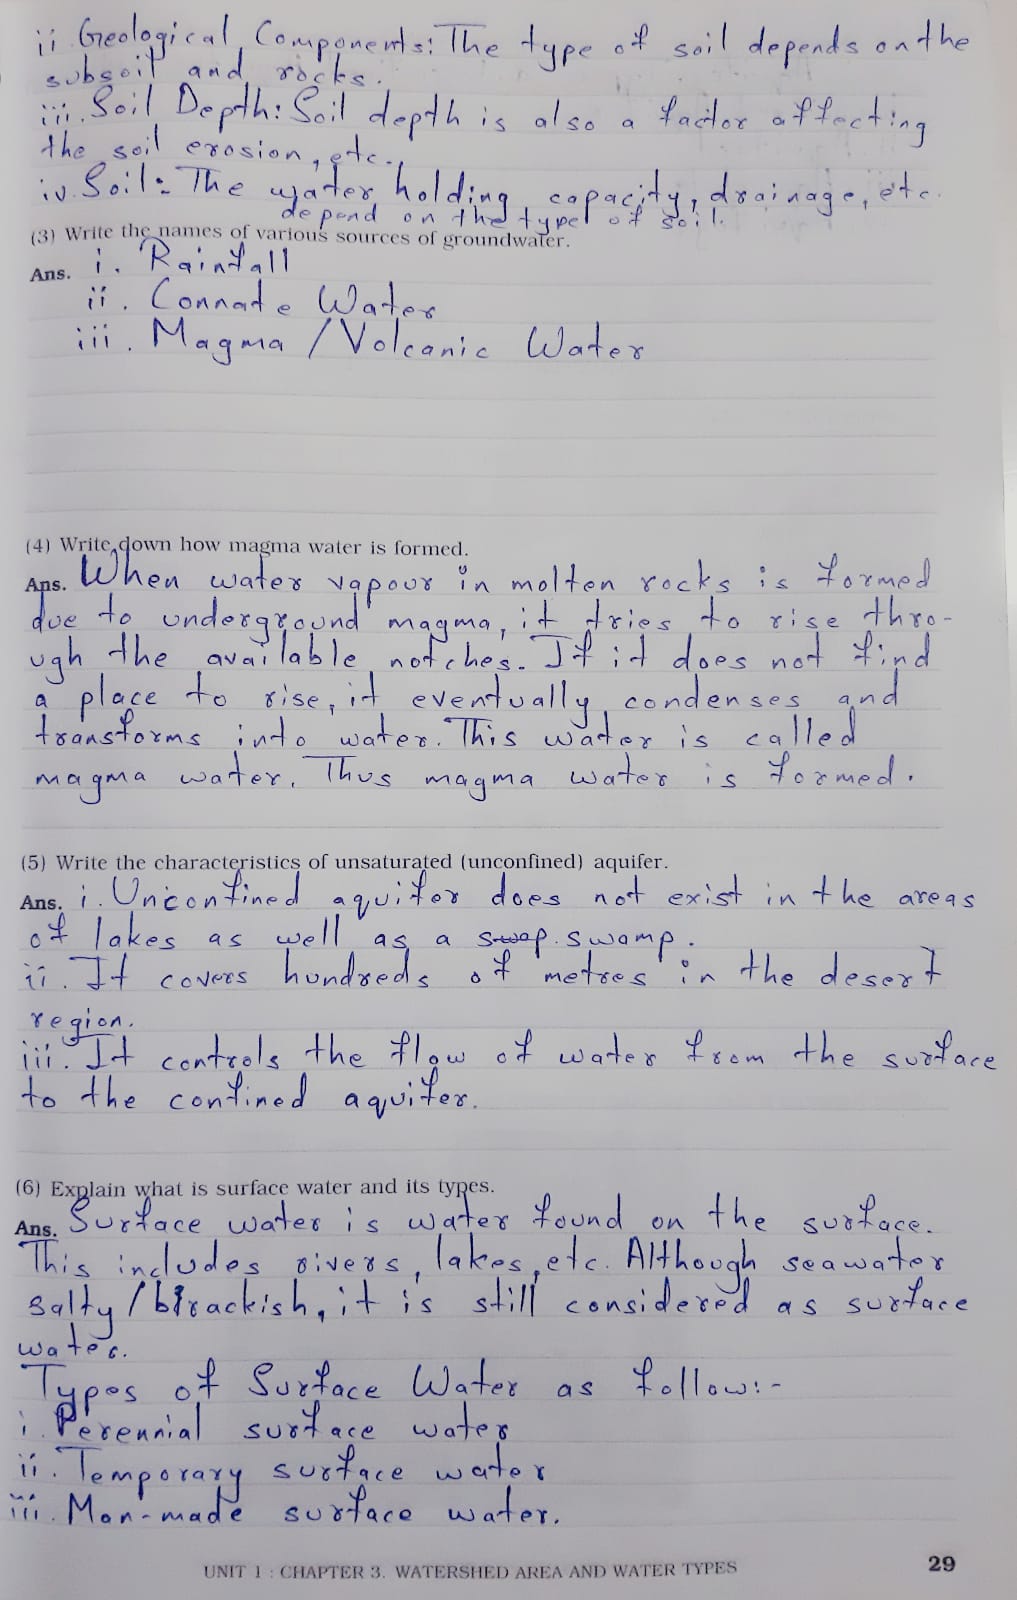 ii Geological Components: The type of soil depends on the
subsoil and rocks.
iii. Soil Depth: Soil depth is also a factor affecting
the soil erosion, etc.
iv. Soil: The water holding capacity, drainage, etc.
depend on the type of soil.
(3) Write the names of various sources of groundwater.
Ans. i. Rainfall
ii. Connate Water
iii. Magma / Volcanic Water
(4) Write down how magma water is formed.
Ans. When water vapour in molten rocks is formed
due to underground magma, it tries to rise thro-
ugh the available notches. If it does not find
a place to rise, it eventually condenses and
transforms into water. This water is called
magma water. Thus magma water is formed.
(5) Write the characteristics of unsaturated (unconfined) aquifer.
Ans. i. Unconfined aquifer does not exist in the areas
of lakes as well as a swamp.
ii. It covers hundreds of metres in the desert
region.
iii. It controls the flow of water from the surface
to the confined aquifer.
(6) Explain what is surface water and its types.
Ans. Surface water is water found on the surface.
This includes rivers, lakes, etc. Although seawater
salty / brackish, it is still considered as surface
water.
Types of Surface Water as follow:-
i. Perennial surface water
ii. Temporary surface water
iii. Man-made surface water.
UNIT 1 : CHAPTER 3. WATERSHED AREA AND WATER TYPES 29